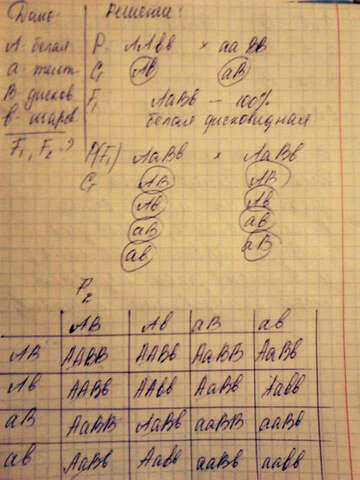 Дано: Решение:
А - белая Р: ААвв × ааВВ
а - желт G Ав аВ
В - дисков F₁ АаВв — 100%
в - шаров белая дисковидная
F₁, F₂ - ? Р(F₁) АаВв × АаВв
G АВ АВ
Ав Ав
аВ ав
ав аВ
F₂
АВ Ав аВ ав
АВ ААВВ ААВв АаВВ АаВв
Ав ААВв ААвв АаВв Аавв
аВ АаВВ АаВв ааВВ ааВв
ав АаВв Аавв ааВв аавв